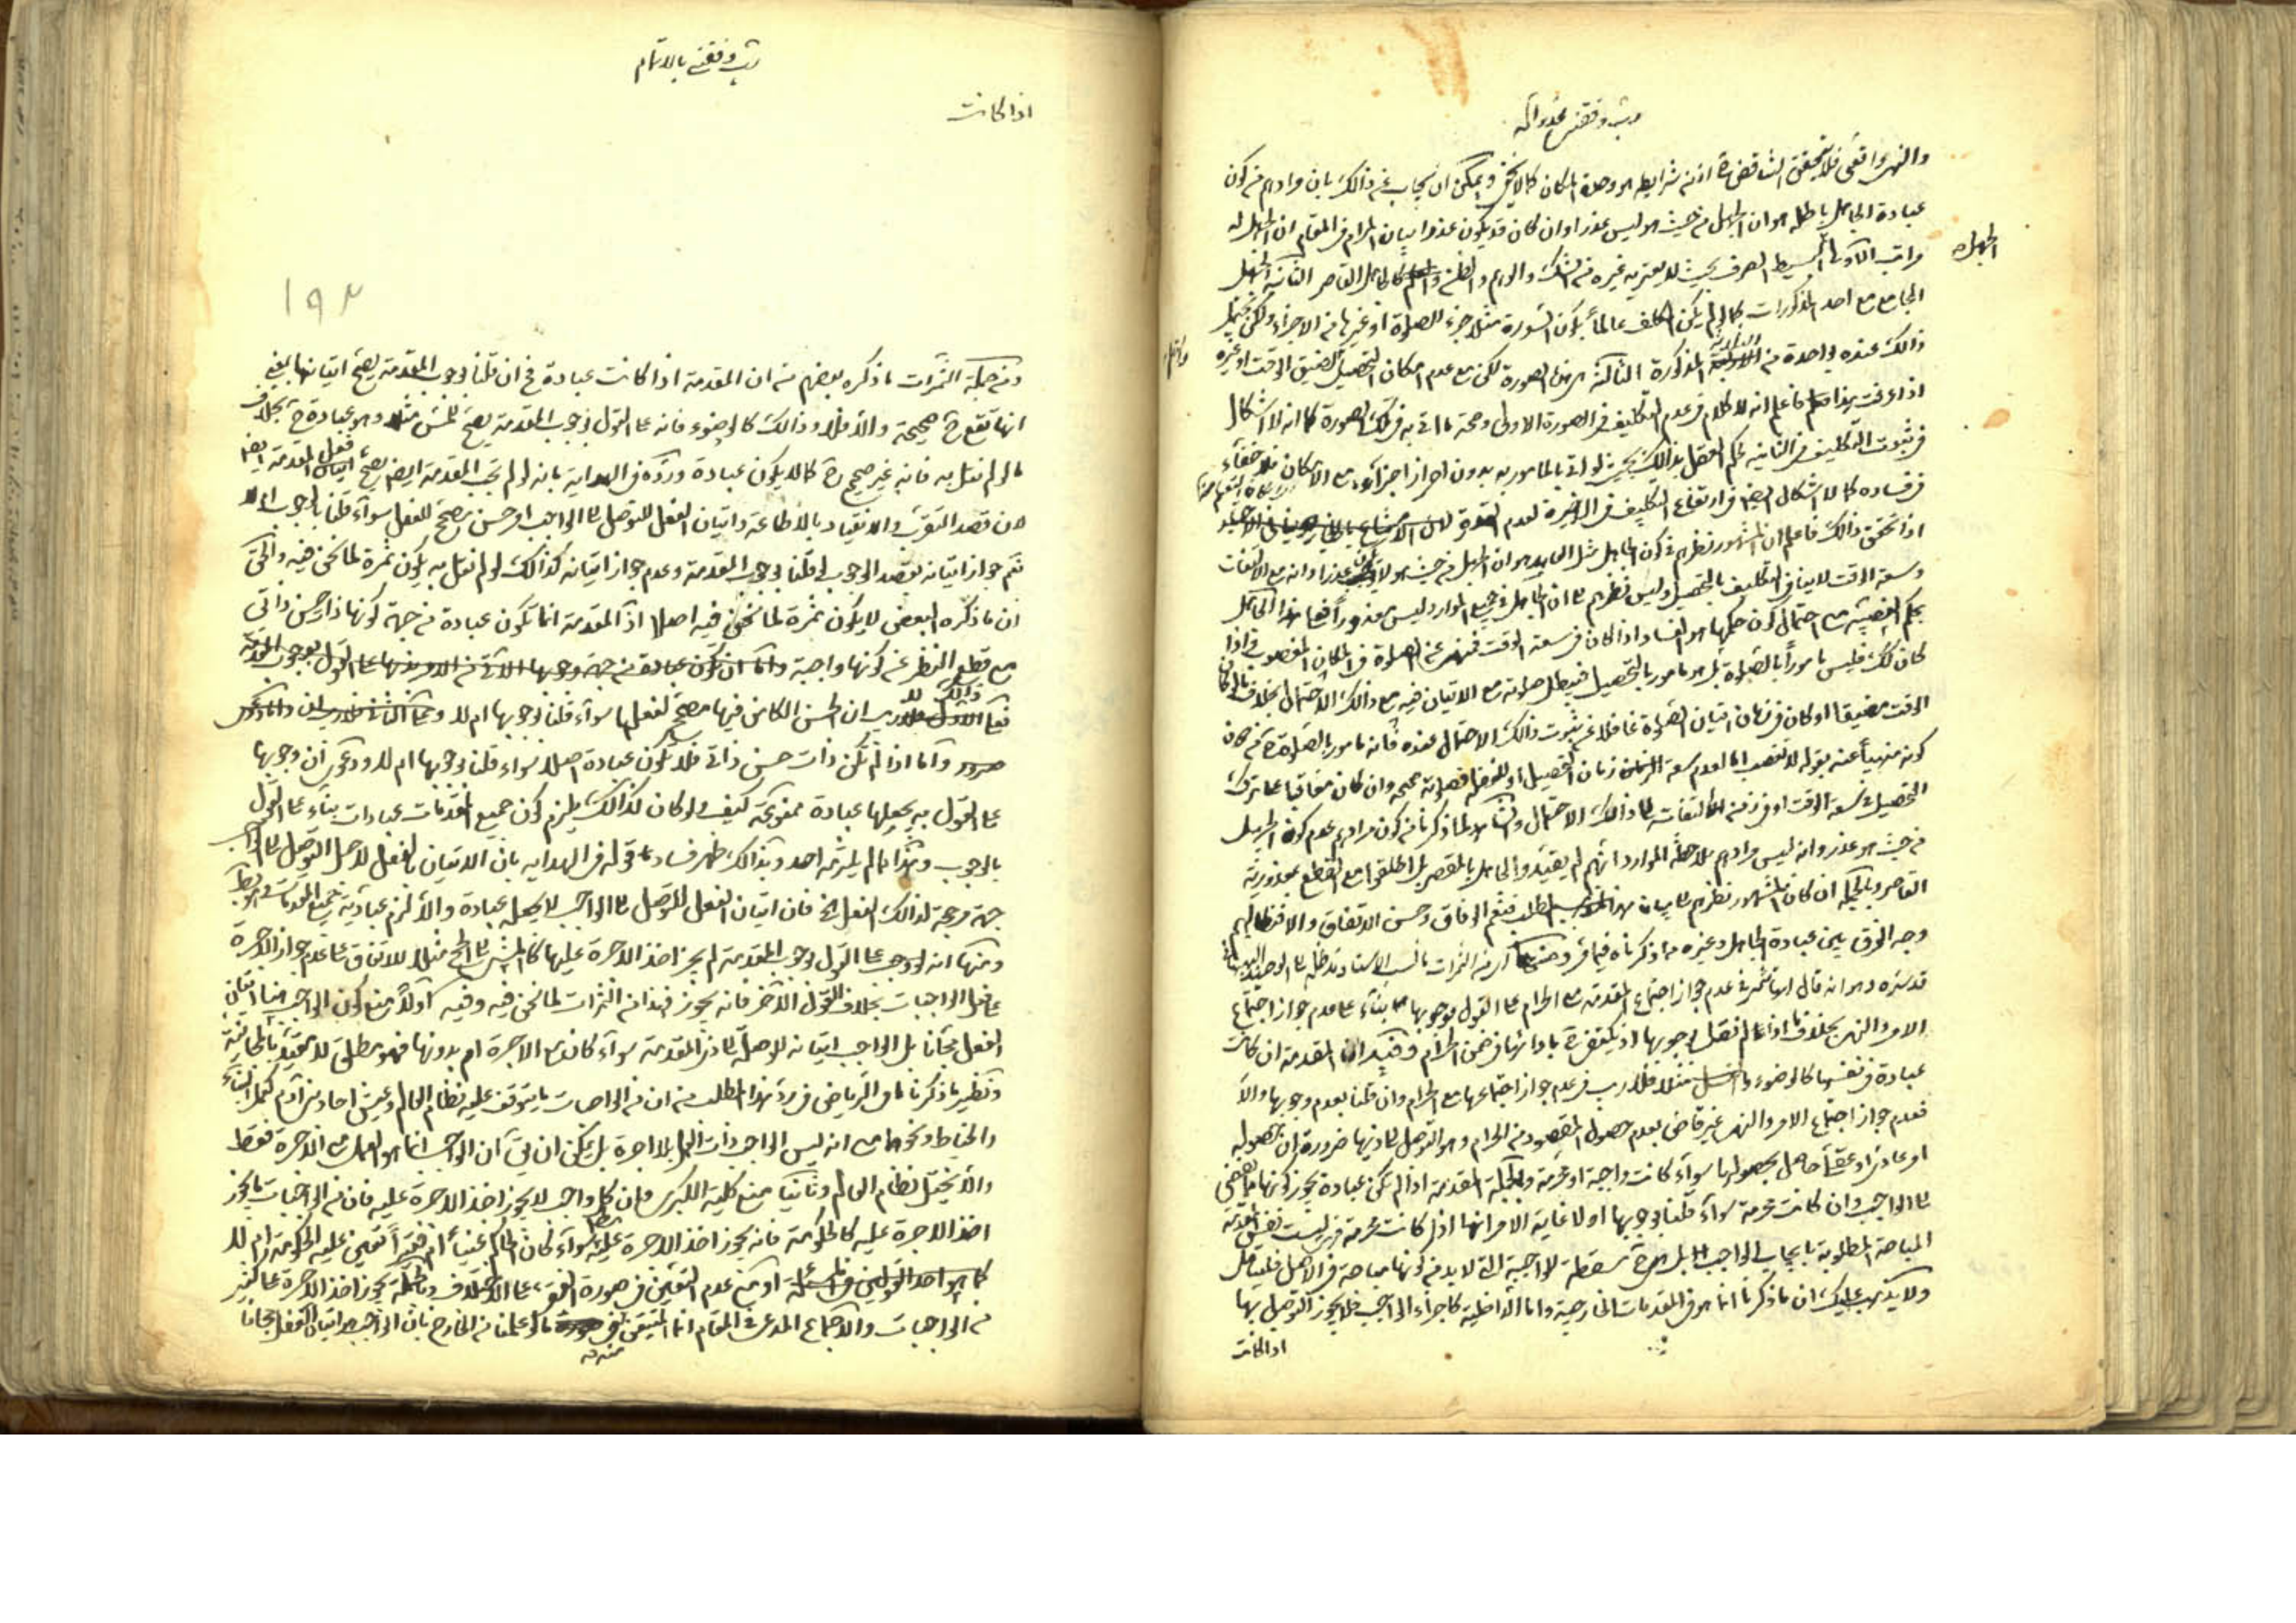 رب وفقنی بمحمد وآله
والنهی واقعی فلا یتحقق التناقض ح اذ من شرایطه هو وحدة المکان کما لا یخفی ویمکن ان یجاب عن ذالک بان مرادهم من کون
عبادة الجاهل باطلة هو ان الجهل من حیث هو لیس عذرا وان کان قد یکون عذرا بیان المرام فی المقام ان الجهل له
الجهل
مراتب الاولی البسیط الصرف بحیث لا یعتریه غیره من الشک والوهم والظن کالجاهل القاصر الثانیة الجهل
الجامع مع احد المذکورات کما لو لم یکن المکلف عالما بکون السورة مثلا جزء للصلوة او غیرها من الاجزاء ولکن یحتمل
ذالک عنده بواحدة من المذکورة الثالثة هی هذه الصورة لکن مع عدم امکان التحصیل لضیق الوقت او غیره
اذا عرفت هذا فاعلم انه لا کلام فی عدم التکلیف فی الصورة الاولی وصحة ما اتی به فی تلک الصورة کما انه لا اشکال
فی ثبوت التکلیف فی الثانیه لحکم العقل بذالک بحیث لو اتی بالمامور به بدون احراز اجزاءه مع الامکان فلا خفاء
فی فساده کما لا اشکال ایضا فی ارتفاع التکلیف فی الاخیرة لعدم القدرة
اذا تحقق ذالک فاعلم ان المشهور نظرهم فی کون الجاهل مثل العامد هو ان الجهل من حیث هو لا یکون عذرا وانه مع الالتفات
وسعة الوقت لا ینافی التکلیف بالتحصیل ولیس نظرهم الی ان الجاهل فی جمیع الموارد لیس معذورا فعلی هذا الجاهل
بحکم الغصبیة مع احتمال کون حکمها هو الفساد اذا کان فی سعة الوقت فنهی عن الصلوة فی المکان المغصوب فاذا
کان کذلک فلیس مامورا بالصلوة بل هو مامور بالتحصیل فیبطل صلوته مع الاتیان فیه مع ذالک الاحتمال بخلاف ما لو کان
الوقت مضیقا او کان فی زمان اتیان الصلوة غافلا عن ثبوت ذالک الاحتمال عنده فانه مامور بالصلوة ح من دون
کونه منهیا عنه بقوله لا تغصب اما لعدم سعة زمان التحصیل او للغفلة فصلوته صحیحه وان کان معاقبا علی ترک
التحصیل فی سعة الوقت او فی زمن الالتفات الی ذالک الاحتمال والشاهد لما ذکرنا من کون مرادهم عدم کون الجهل
من حیث هو عذر وانه لیس مرادهم ملاحظة الموارد انهم لم یقیدوا الجاهل بالمقصر بل اطلقوا مع القطع بمعذوریة
القاصر وبالجملة ان کان المشهور نظرهم الی بیان هذا المطلب فنعم الوفاق وحسن الاتفاق والا فنطالبهم
وجه الفرق بین عبادة الجاهل وغیره مما ذکرناه فیما مر ومنها ان من الثمرات ما نسب الی الاستاد مد ظله الی الوحید البهبهانی
قدس سره وهو انه قال انها تثمر فی عدم جواز اجتماع المقدمة مع الحرام علی القول بوجوبها بناء علی عدم جواز اجتماع
الامر والنهی بخلاف ما اذا لم نقل بوجوبها اذ یکتفی ح بادائها فی ضمن الحرام وفیه ان المقدمة ان کانت
عبادة فی نفسها کالوضوء والغسل مثلا فلا ریب فی عدم جواز اجتماعها مع الحرام وان قلنا بعدم وجوبها والا
فعدم جواز اجتماع الامر والنهی غیر قاض بعدم حصول المقصود من الحرام وهو التوصل الی ذیها ضرورة ان حصوله
او عادی او عقلی حاصل بحصولها سواء کانت واجبة او محرمة وبالجملة المقدمة اذا لم تکن عبادة یجوز کونها مما یفضی
الی الواجب وان کانت محرمة سواء قلنا بوجوبها او لا غایة الامر انها اذا کانت محرمة فهی لیست نفس المقدمة
المباحة المطلوبة بایجاب الواجب بل هی ح مسقطة لوا جبة التی لا بد من کونها مباحة فی الاصل فلیتامل
ولا یذهب علیک ان ما ذکرنا انما هو فی المقدمات الخارجیة واما الداخلیة کاجزاء الواجب فلا یجوز التوصل بها
اذا کانت
رب وفقنی بالاتمام
اذا کانت
۱۹۲
ومن جملة الثمرات ما ذکره بعضهم من ان المقدمة اذا کانت عبادة فح ان قلنا بوجوب المقدمة یصح اتیانها یعنی
انها تقع ح صحیحة والا فلا وذالک کالوضوء فانه علی القول بوجوب المقدمة یصح للمس مثلا وهو عبادة ح بخلاف
ما لو لم نقل به فانه غیر صحیح ح کما لا یکون عبادة ورده فی الهدایة بانه لو لم تجب المقدمة ایضا یصح فعل المقدمة ایضا
لان قصد التقرب والانقیاد بالاطاعة واتیان الفعل للتوصل الی الواجب امر حسن یصح للفعل سواء قلنا بالوجوب ام لا
نعم جواز اتیانه بقصد الوجوب لو قلنا بوجوب المقدمة وعدم جواز اتیانه کذالک لو لم نقل به یکون ثمرة لما نحن فیه والحق
ان ما ذکره البعض لا یکون ثمرة لما نحن فیه اصلا اذ المقدمة انما تکون عبادة من جهة کونها ذا حسن ذاتی
مع قطع النظر عن کونها واجبة
فعلی ذالک لا ریب ان الحسن الکامن فیها مصحح لفعلها سواء قلنا بوجوبها ام لا
واما اذا لم تکن ذات حسن ذاتی فلا تکون عبادة اصلا سواء قلنا بوجوبها ام لا ودعوی ان وجوبها
علی القول به یجعلها عبادة ممنوعة کیف ولو کان کذالک یلزم کون جمیع المقدمات عبادات بناء علی القول
بالوجوب وهذا مما لم یلتزمه احد وبذالک ظهر فساد ما قوله فی الهدایه بان الاتیان بالفعل لاجل التوصل الی الواجب
جهة مرجحة لذالک الفعل الخ فان اتیان الفعل للتوصل الی الواجب لا یجعله عبادة والا لزم عبادیة جمیع المقدمات
ومنها انه لو وجب علی القول بوجوب المقدمة لم یجز اخذ الاجرة علیها کالمشی الی الحج مثلا للاتفاق علی عدم جواز الاجرة
علی فعل الواجبات بخلاف القول الآخر فانه یجوز فهذا من الثمرات لما نحن فیه وفیه اولا منع کون الواجب هنا اتیان
الفعل مجانا بل الواجب اتیانه للوصلة الی ذی المقدمة سواء کان مع الاجرة ام بدونها فهو مطلق لا مقید بالمجانیة
ونظیر ما ذکرنا ما فی الریاض فی رد هذا المطلب من ان من الواجبات ما یتوقف علیه نظام العالم وعیش احاد بنی آدم کعمل البناء
والخیاط ونحوهما مع انه لیس الواجب ذات العمل بلا اجرة بل یمکن ان یق ان الواجب انما هو العمل مع الاجرة فقط
والا یختل نظام العالم وثانیا منع کلیة الکبری وان کل واجب لا یجوز اخذ الاجرة علیه فان من الواجبات ما یجوز
اخذ الاجرة علیه کالحکومة فانه یجوز اخذ الاجرة علیه سواء کان الحاکم غنیا ام فقیرا تعین علیه الحکومة ام لا
کما هو احد القولین فی المسئلة او مع عدم التعین فی صورة الفقر علی الاختلاف وبالجملة یجوز اخذ الاجرة علی کثیر
من الواجبات والاجماع المدعی فی المقام انما المتیقن ما لو علمنا من الخارج بان الواجب هو اتیان الفعل مجانا
منه ره